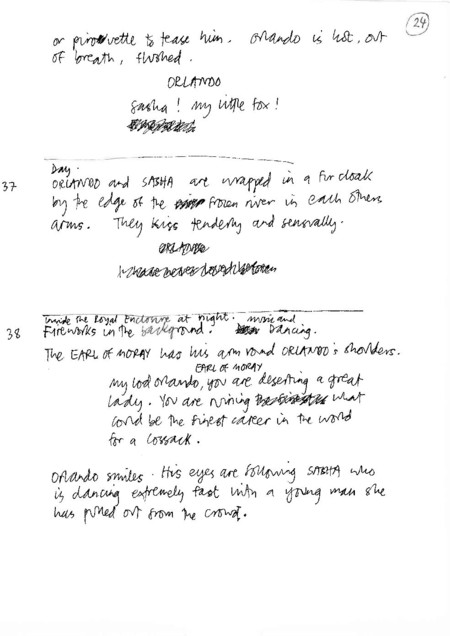 24
or pirouette to tease him. Orlando is hot, out
of breath, flushed.
ORLANDO
Sasha! My little fox!
Day.
37 ORLANDO and SASHA are wrapped in a fur cloak
by the edge of the frozen river in each others
arms. They kiss tenderly and sensually.
ORLANDO
Inside the Royal Enclosure at night. music and
38 Fireworks in the background. Dancing.
The EARL OF MORAY has his arm round ORLANDO's shoulders.
EARL OF MORAY
My lord Orlando, you are deserting a great
lady. You are ruining what
could be the finest career in the world
for a Cossack.
Orlando smiles. His eyes are following SASHA who
is dancing extremely fast with a young man she
has pulled out from the crowd.